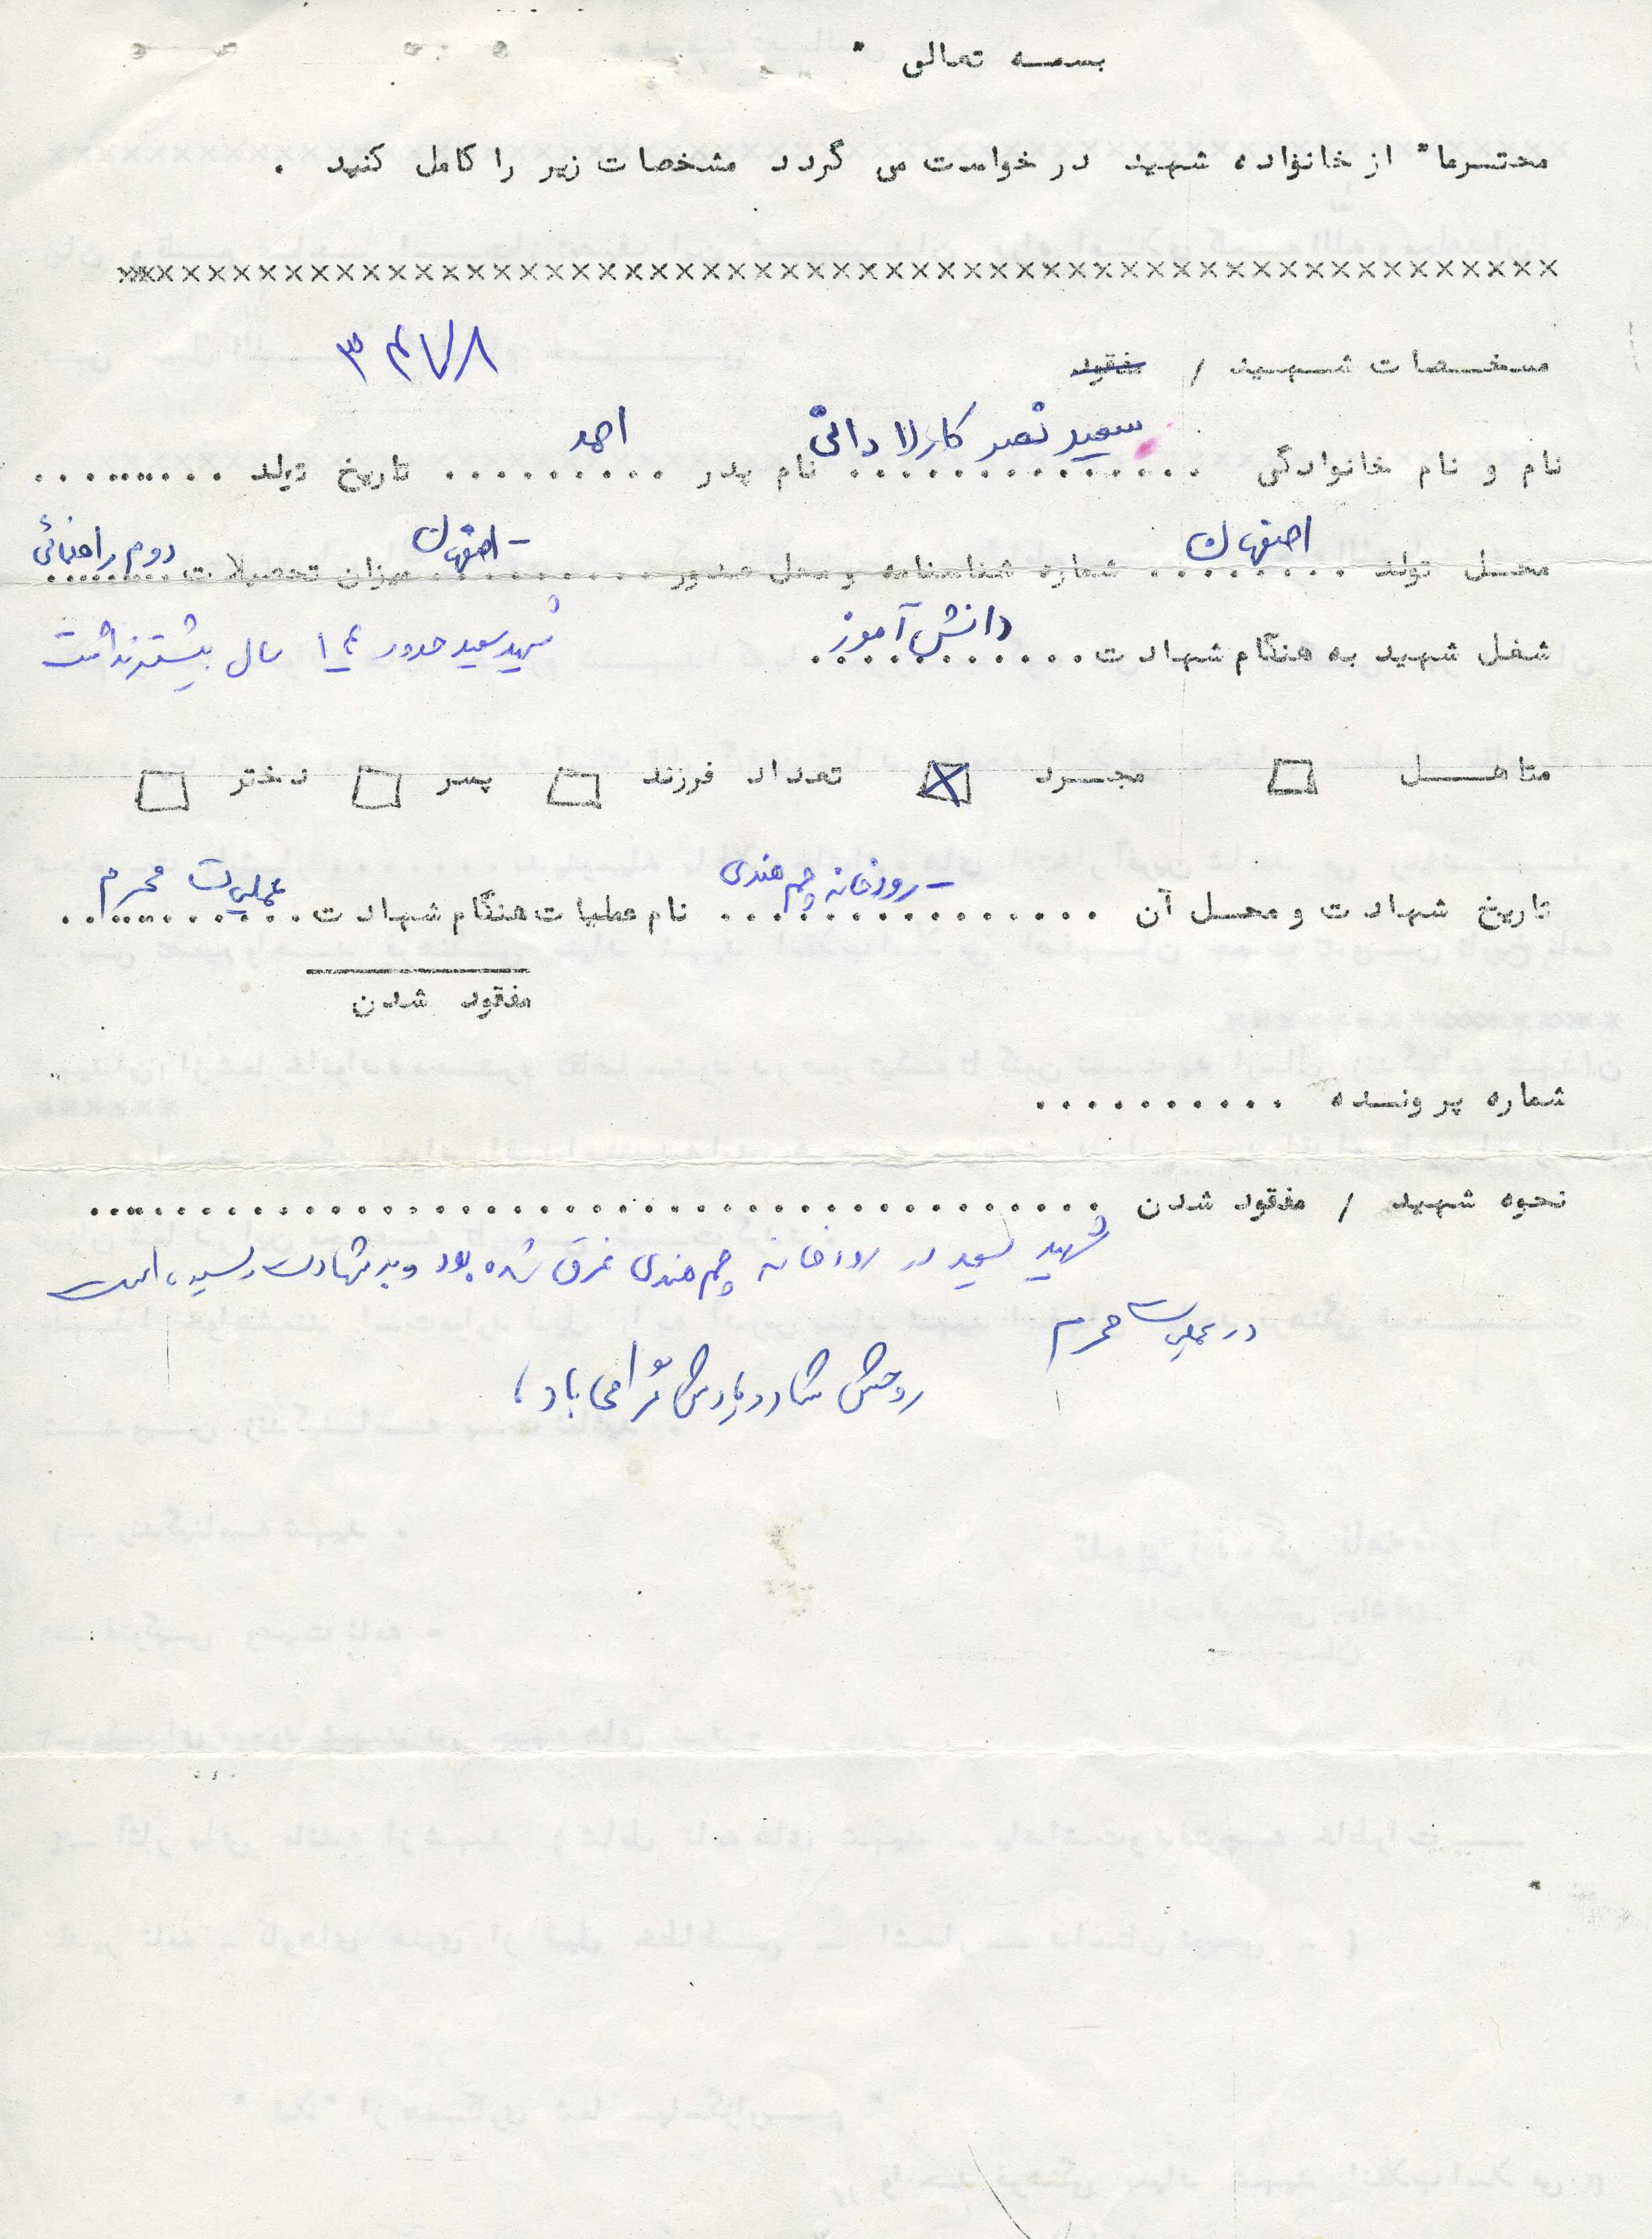 بسمه تعالی
محترما" از خانواده شهید درخواست می گردد مشخصات زیر را کامل کنید .
××××××××××××××××××××××××××××××××××××××××××××××××××××××××
مشخصات شهید / مفقود
نام و نام خانوادگی سعید نصر کارلادانی نام پدر احمد تاریخ تولد .........
محل تولد اصفهان شماره شناسنامه و محل صدور - اصفهان میزان تحصیلات دوم راهنمائی
شغل شهید به هنگام شهادت دانش آموز شهید سعید حدود ۱۴ سال بیشتر نداشت
متاهل □ مجرد ☒ تعداد فرزند □ پسر □ دختر □
تاریخ شهادت و محل آن - رودخانه چم هندی نام عملیات هنگام شهادت عملیات محرم
مفقود شدن
شماره پرونده ...........
نحوه شهید / مفقود شدن ........................................
شهید سعید در رودخانه چم هندی غرق شده بود و به شهادت رسیده است
در عملیات محرم
روحش شاد و یادش گرامی باد